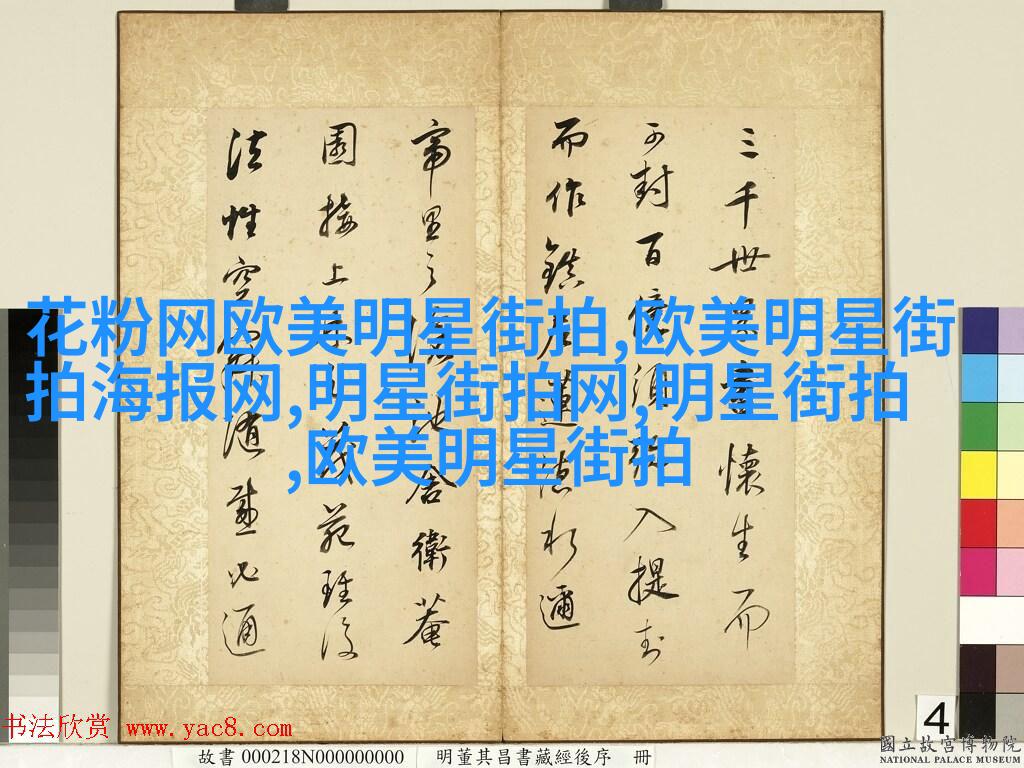 花粉网欧美明星街拍,欧美明星街
拍海报网,明星街拍网,明星街拍
,欧美明星街拍
三千世懷生而
可封百億須入提封
而作鎮
帝里之池舍衛菴
園接上苑
法性空随感必通
4
书法欣赏 www.yac8.com
故書 000218N000000000 明董其昌書藏經後序 冊
國立故宮博物院
NATIONAL PALACE MUSEUM